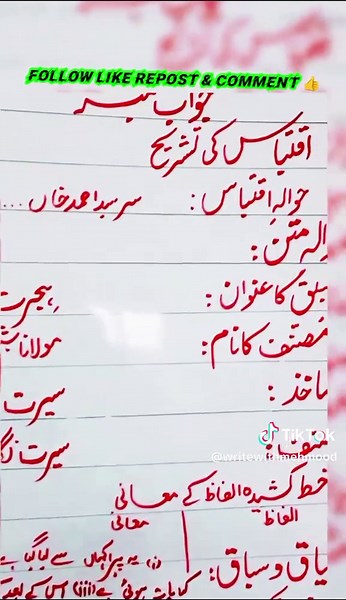 FOLLOW LIKE REPOST & COMMENT 👍
جواب نمبر
اقتباس کی تشریح
حوالہ اقتباس : سرسید احمد خاں ...
الہ متن :
سبق کا عنوان : ہجرت
مصنف کا نام : مولانا
ماخذ : سیرت
سیرت
TikTok
@writewithmehmood
خط کشیدہ الفاظ کے معانی
الفاظ معانی
یاق و سباق : (i) یہ پیرا کہاں سے لیا گیا ہے
کیا بات ہوئی ہے (iii) اس کے بعد